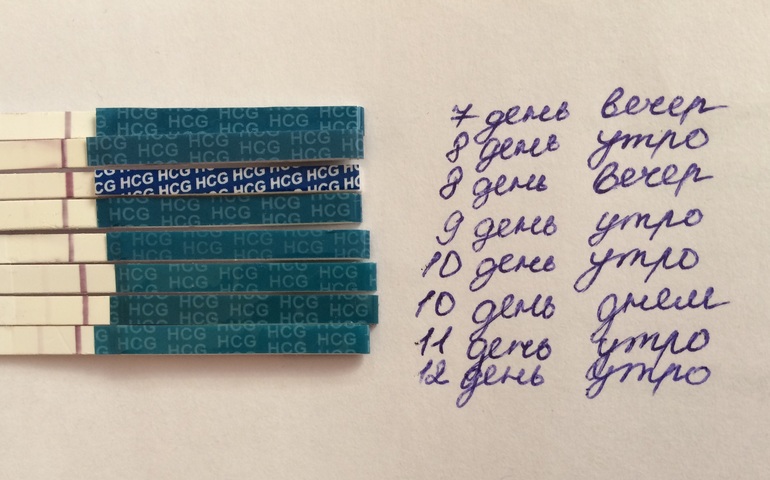 HCG HCG HCG HCG HCG 7 день вечер
HCG HCG HCG HCG HCG 8 день утро
HCG HCG HCG HCG HCG HCG HCG 8 день вечер
HCG HCG HCG HCG HCG 9 день утро
HCG HCG HCG HCG HCG 10 день утро
HCG HCG HCG HCG HCG 10 день днем
HCG HCG HCG HCG HCG 11 день утро
HCG HCG HCG HCG HCG 12 день утро